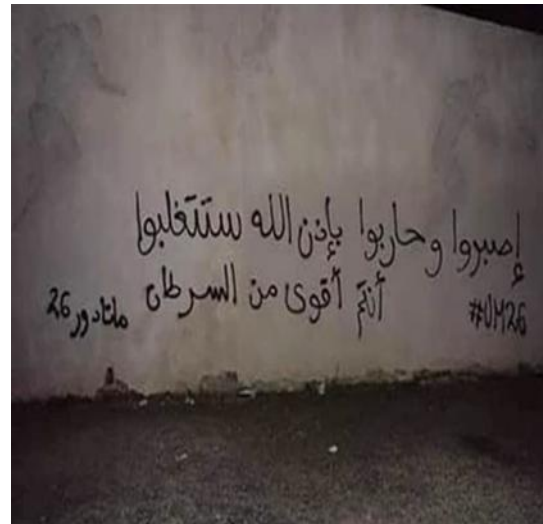 إصبروا وحاربوا بإذن الله ستتغلبوا
أنتم أقوى من السرطان
#UM26
ماتادور 26